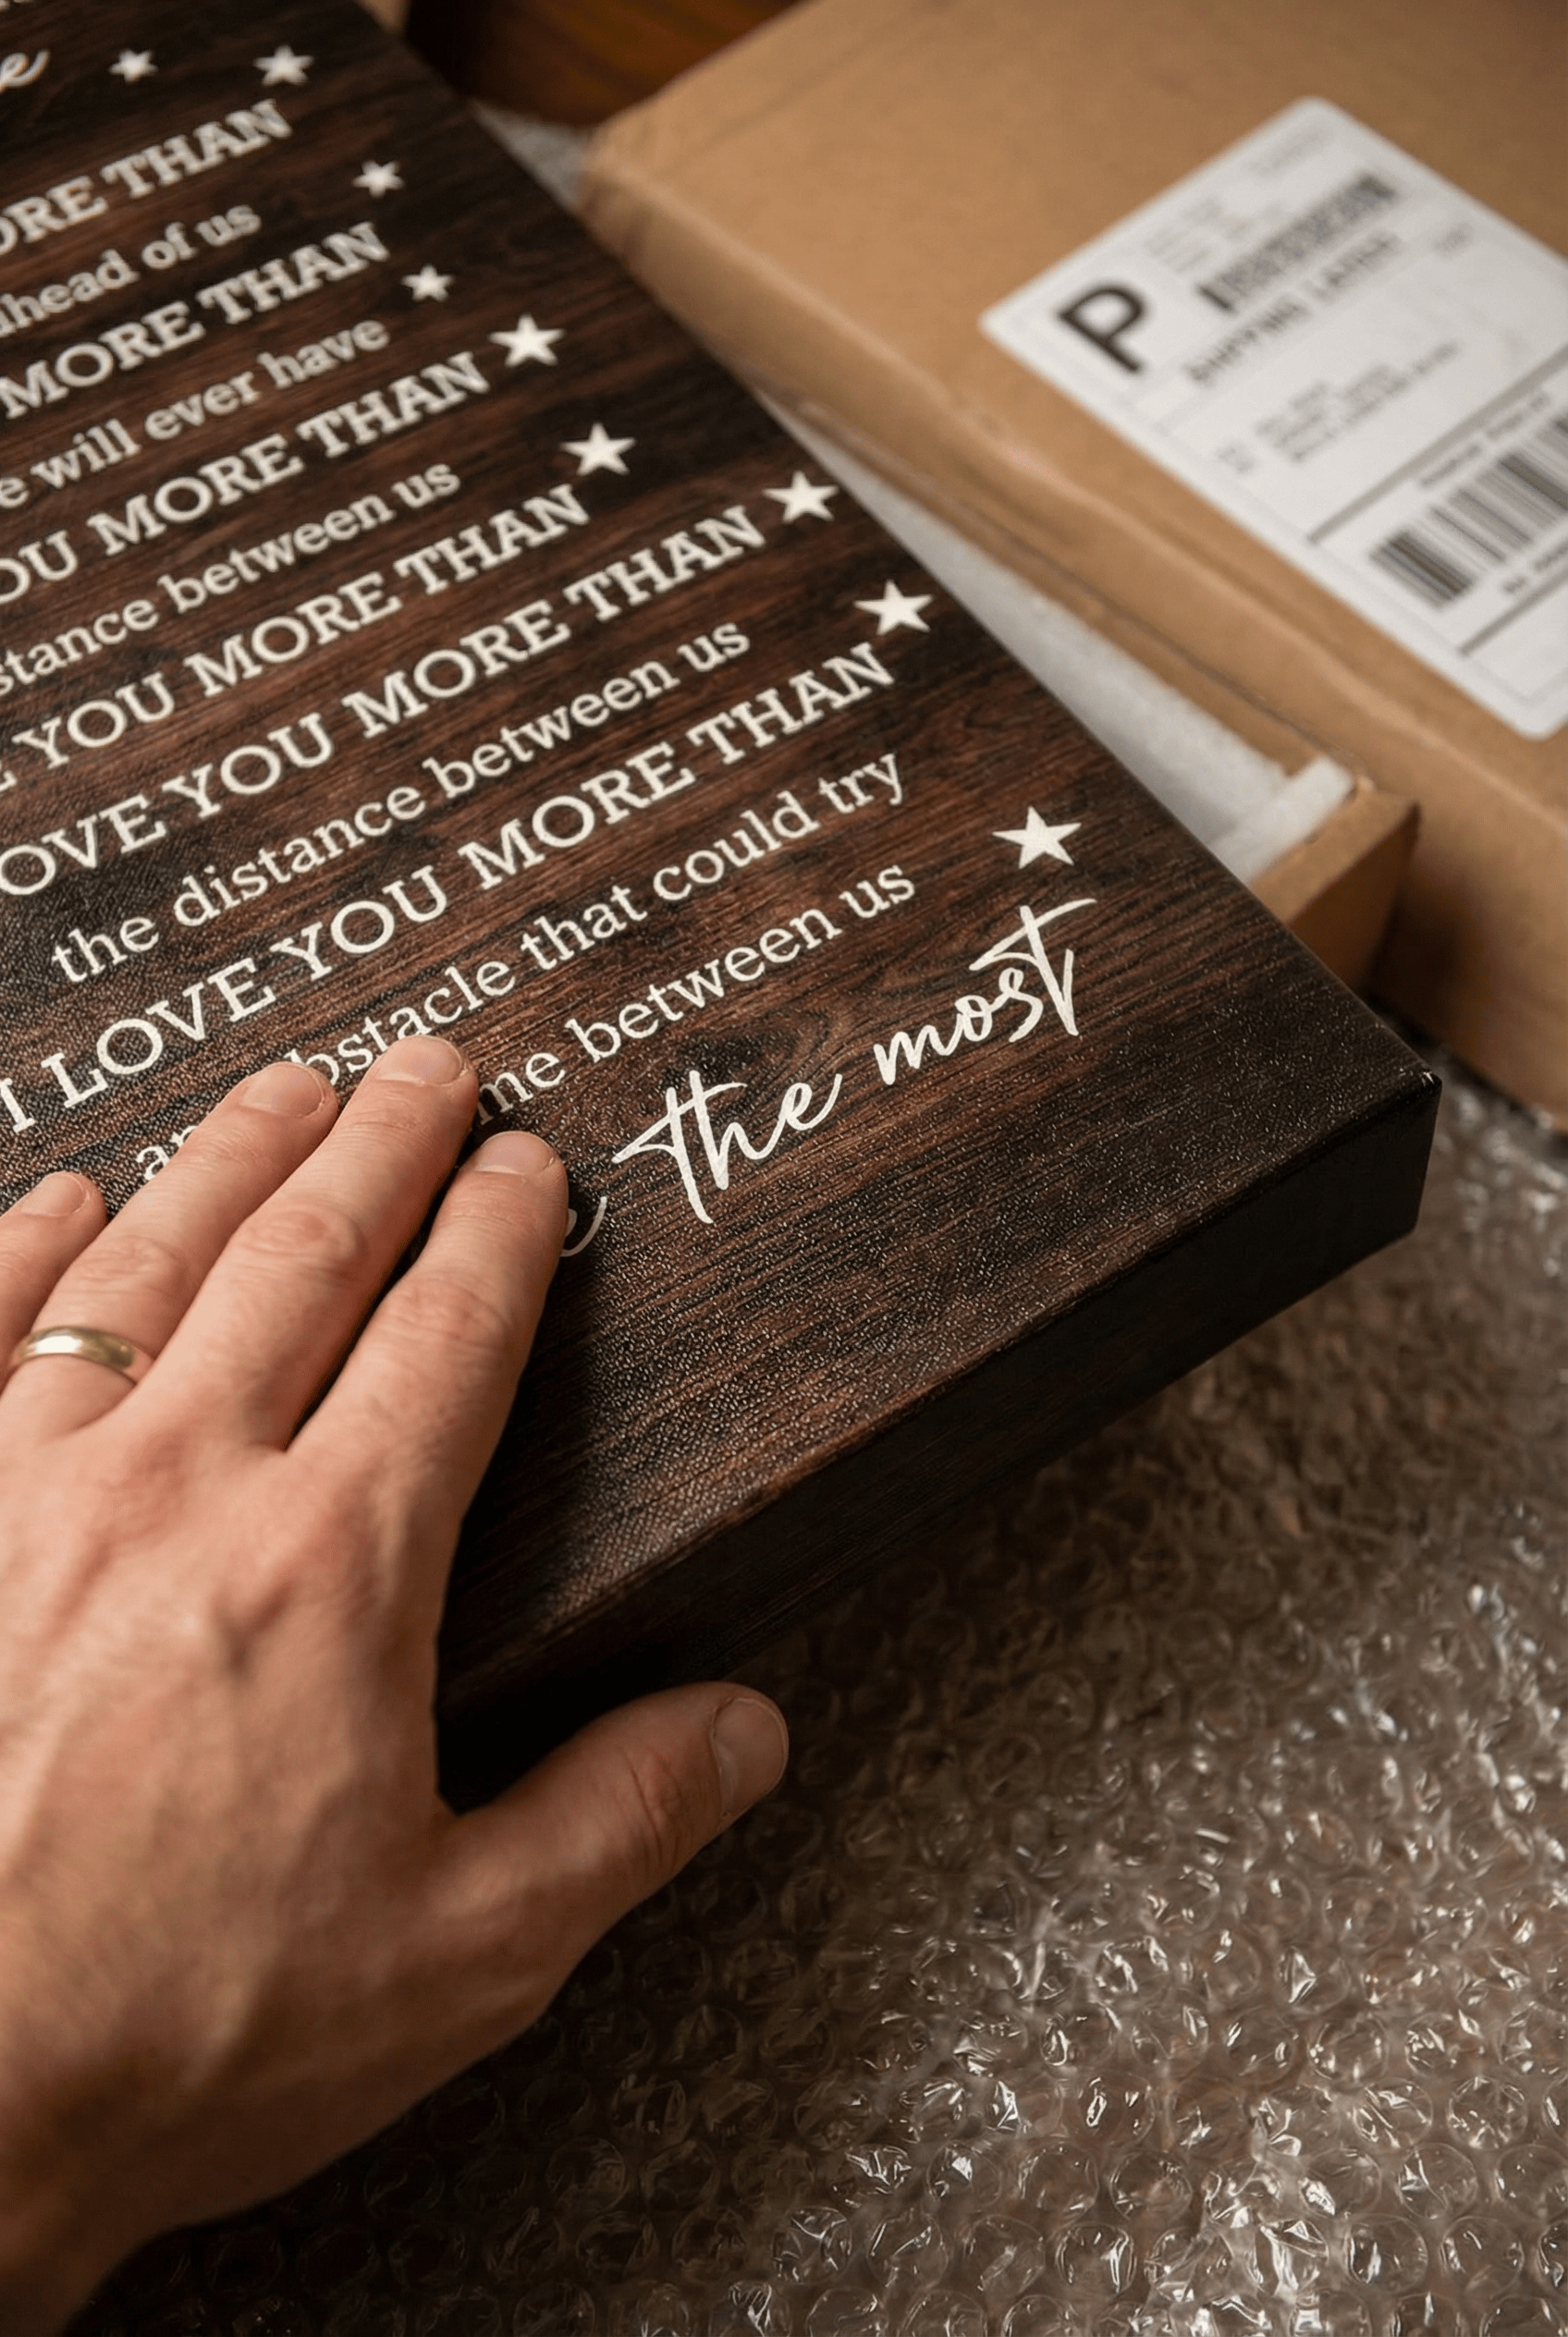 e
ORE THAN
ahead of us
MORE THAN
e will ever have
OU MORE THAN
stance between us
E YOU MORE THAN
OVE YOU MORE THAN
the distance between us
I LOVE YOU MORE THAN
bstacle that could try
me between us
e the most
P
SHIPPING